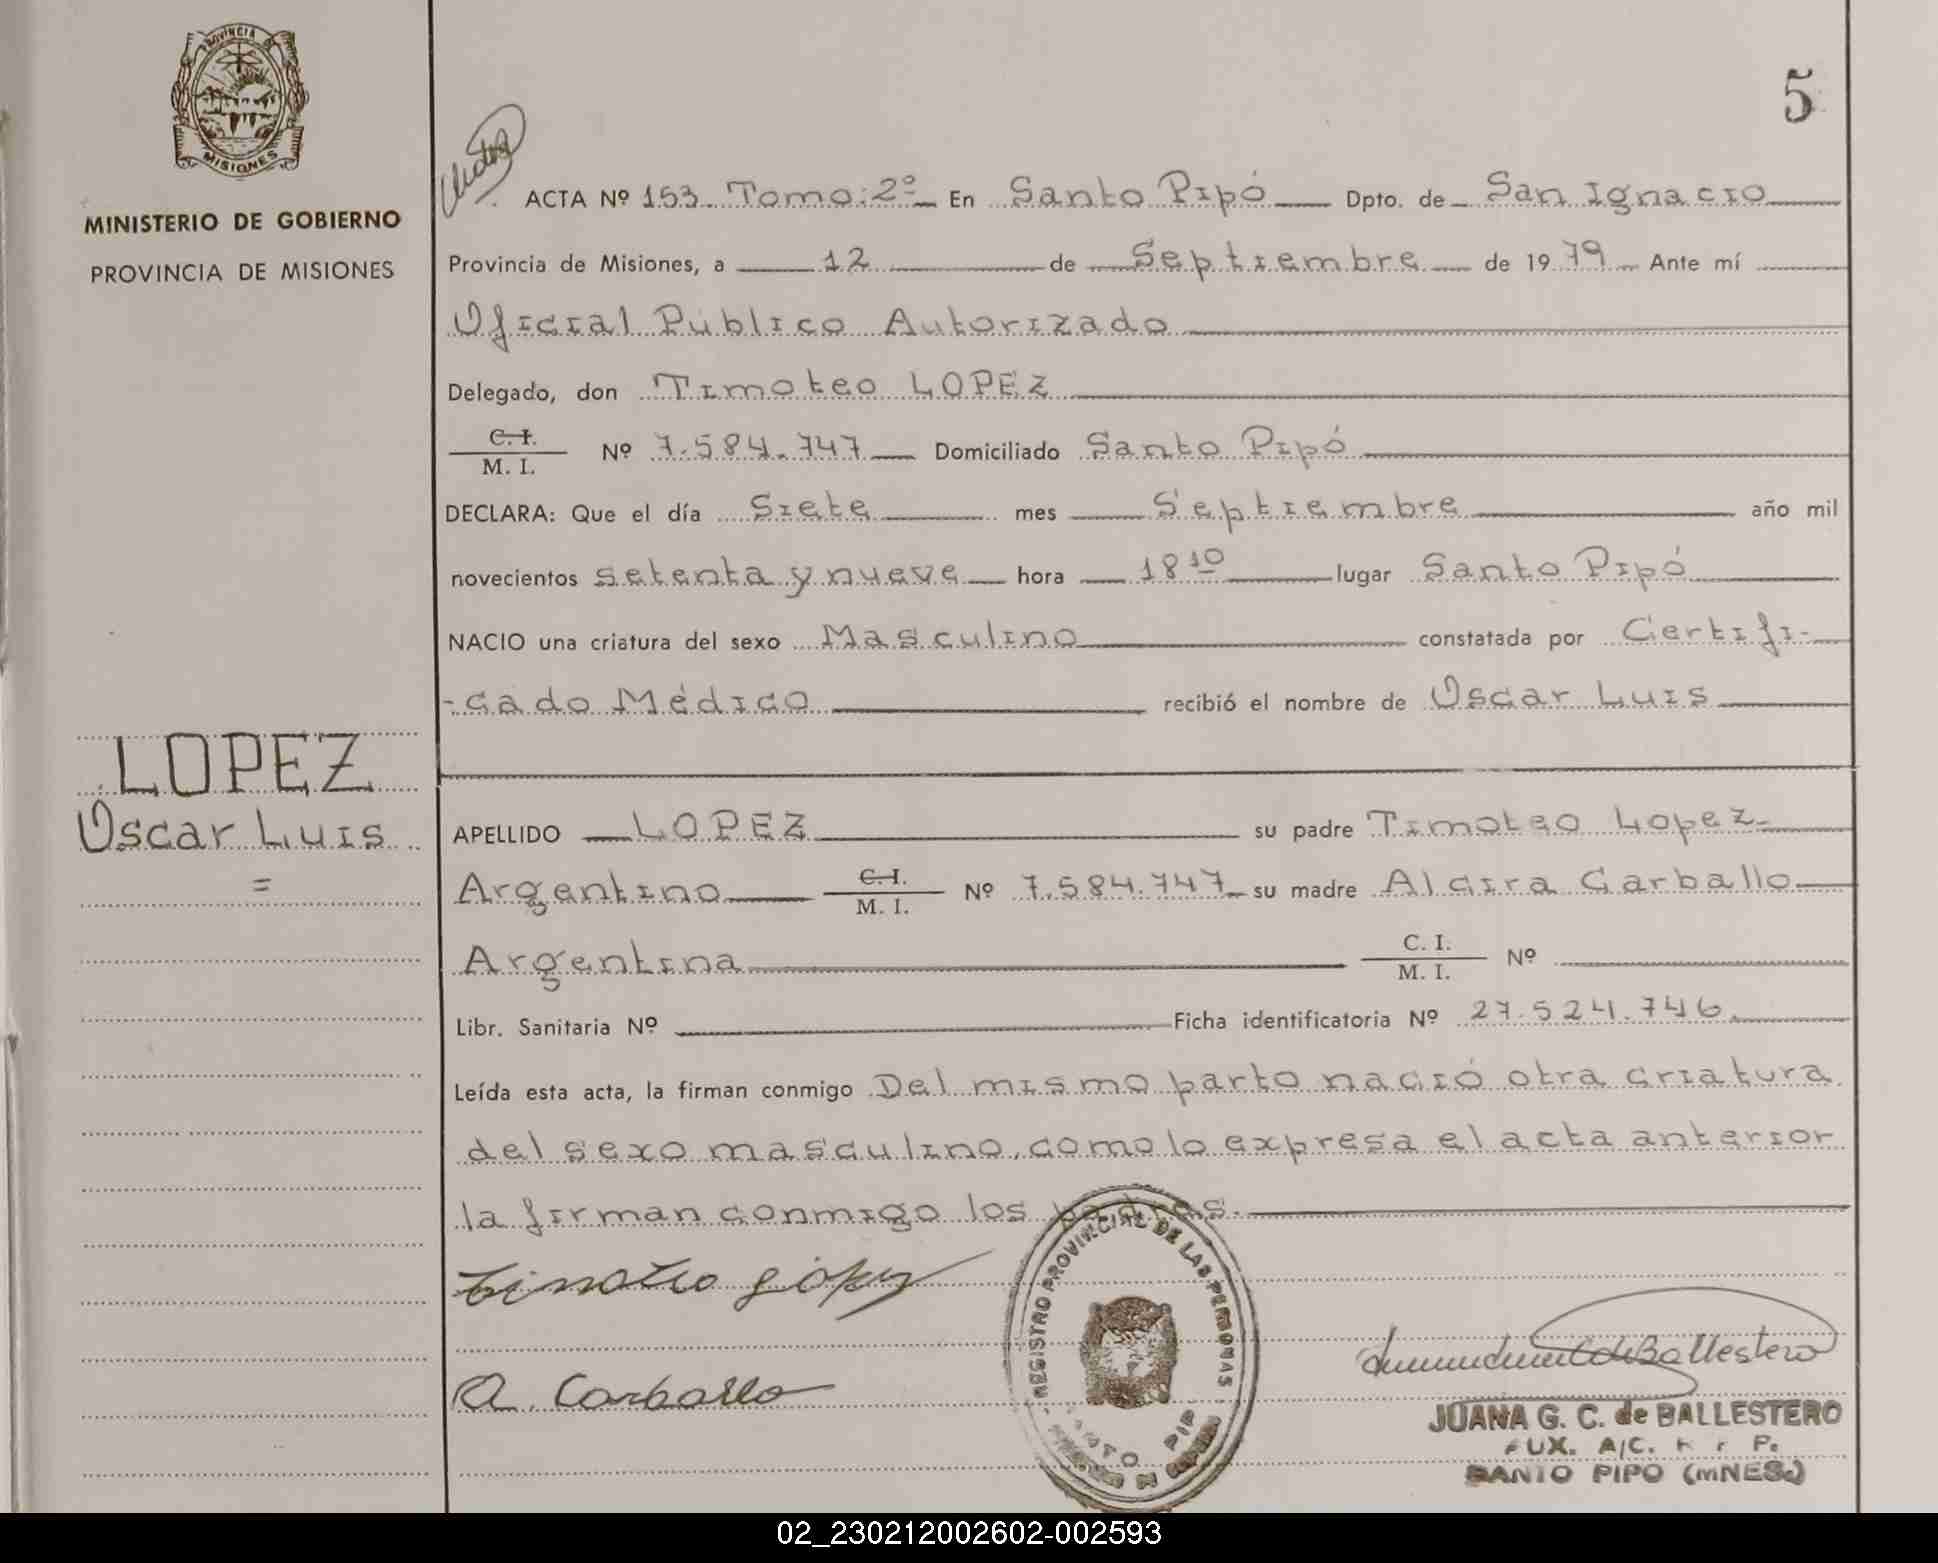 PROVINCIA DE
MISIONES
MINISTERIO DE GOBIERNO
PROVINCIA DE MISIONES
LOPEZ
Oscar Luis
=
5
ACTA Nº 153. Tomo: 2º En Santo Pipó Dpto. de San Ignacio
Provincia de Misiones, a 12 de Septiembre de 1979 Ante mí
Oficial Público Autorizado
Delegado, don Timoteo LOPEZ
C. I.
M. I. Nº 7.584.747 Domiciliado Santo Pipó
DECLARA: Que el día Siete mes Septiembre año mil
novecientos setenta y nueve hora 18 10 lugar Santo Pipó
NACIO una criatura del sexo Masculino constatada por Certifi-
-cado Médico recibió el nombre de Oscar Luis
APELLIDO LOPEZ su padre Timoteo Lopez
Argentino C. I.
M. I. Nº 7.584.747 su madre Alcira Carballo
Argentina C. I.
M. I. Nº
Libr. Sanitaria Nº Ficha identificatoria Nº 27.524.746
Leída esta acta, la firman conmigo Del mismo parto nació otra criatura
del sexo masculino, como lo expresa el acta anterior
la firman conmigo los padres.
Timoteo López
A. Carballo
REGISTRO PROVINCIAL DE LAS PERSONAS
SANTO PIPO
de Ballestero
JUANA G. C. de BALLESTERO
AUX. A/C. R. P.
SANTO PIPO (MNES.)
02_230212002602-002593